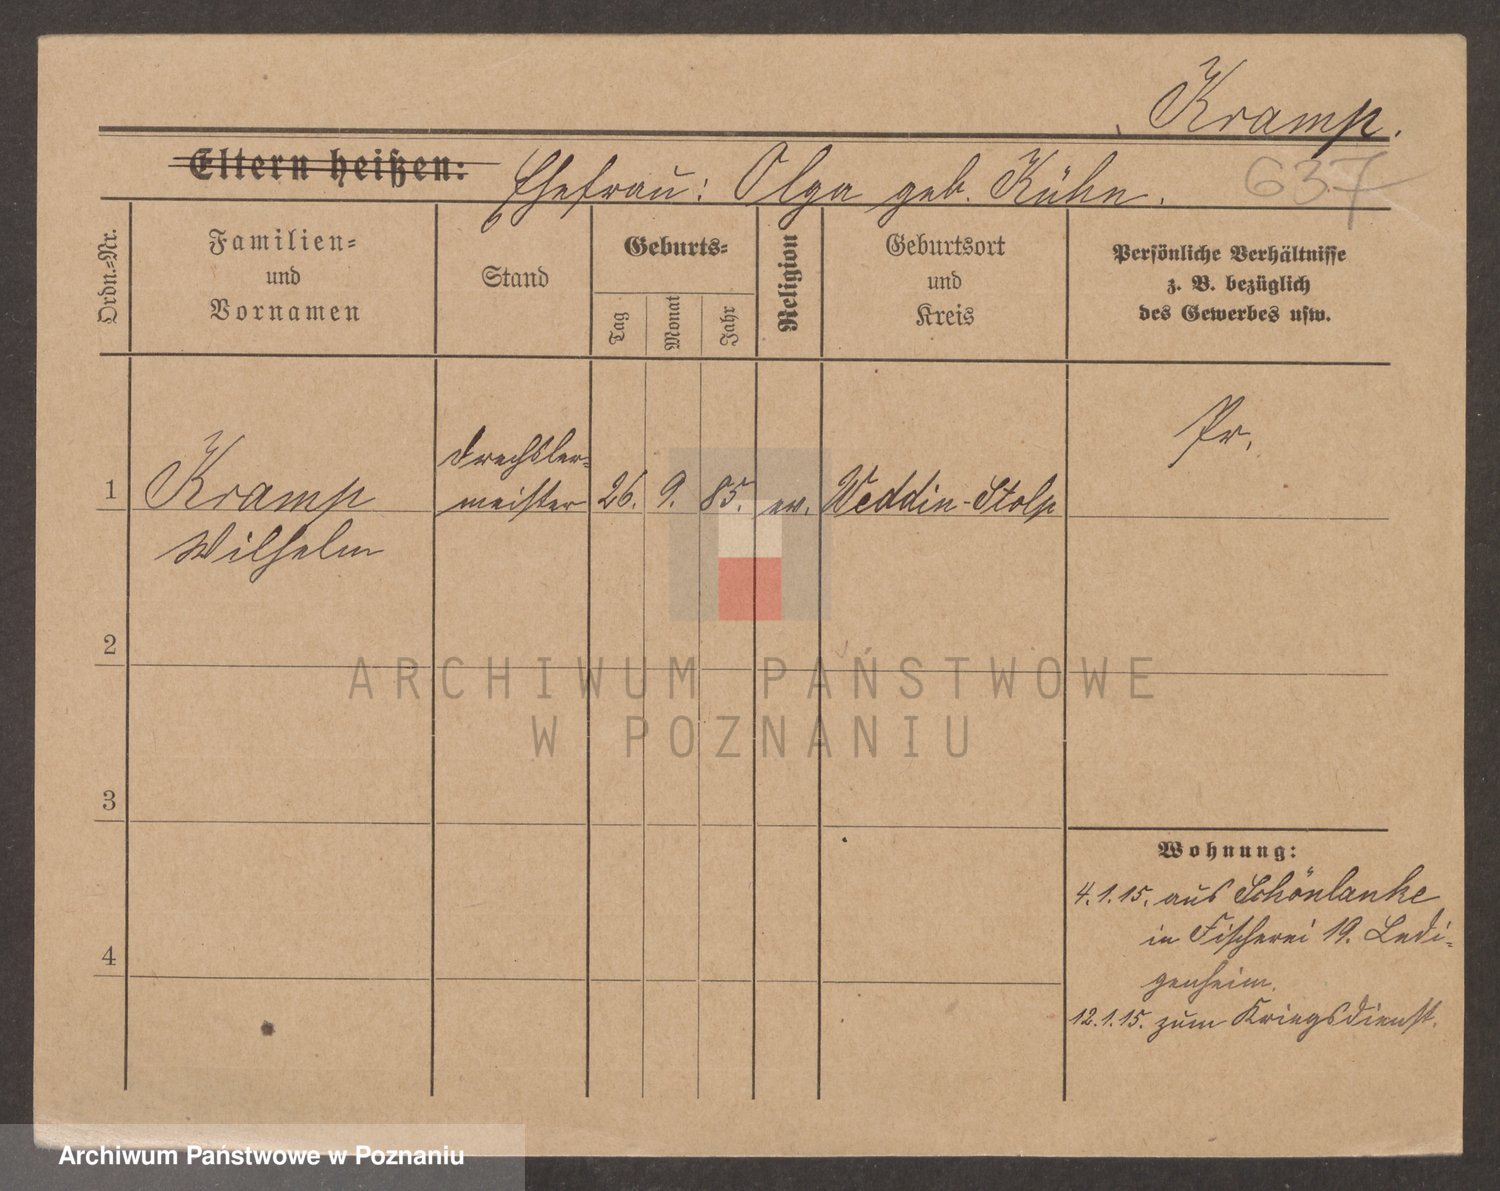 Kramp.
Eltern heißen: Ehefrau: Olga geb. Kühn.
637
Ordn.-Nr.
Familien-
und
Vornamen
Stand
Geburts-
Tag
Monat
Jahr
Religion
Geburtsort
und
Kreis
Persönliche Verhältnisse
z. B. bezüglich
des Gewerbes usw.
Pr.
Drechsler-
1 Kramp meister 26. 9. 85. ev. Weddin-Stolp
Wilhelm
2
3
4
Wohnung:
4.1.15. aus Schönlanke
in Fischerei 19. Ledi-
genheim.
12.1.15. zum Kriegsdienst.
ARCHIWUM PAŃSTWOWE
W POZNANIU
Archiwum Państwowe w Poznaniu